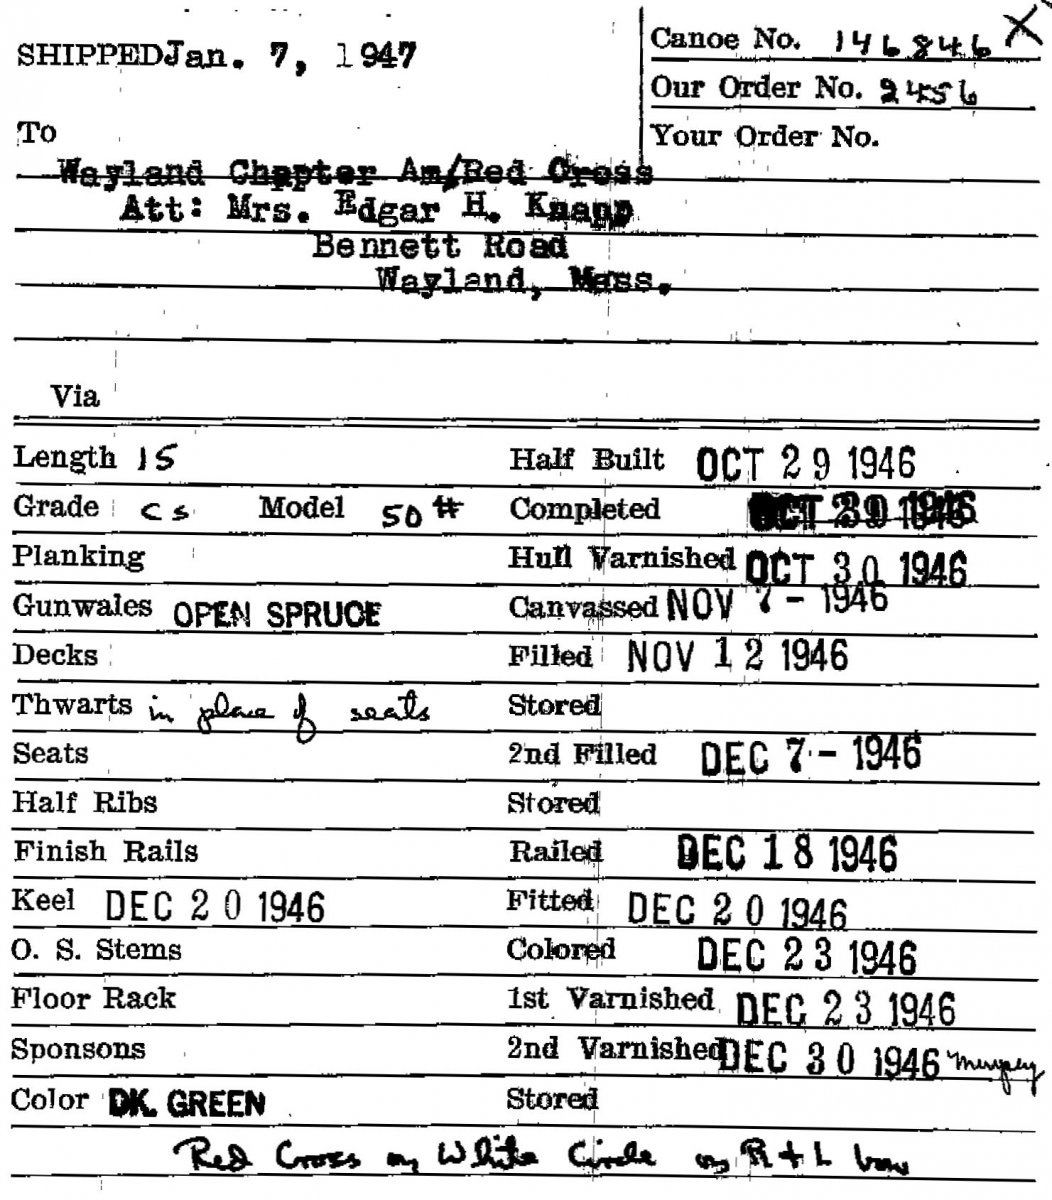 SHIPPED Jan. 7, 1947
Canoe No. 146846 X
Our Order No. 2456
Your Order No.
To
Wayland Chapter Am/Red Cross
Att: Mrs. Edgar H. Knapp
Bennett Road
Wayland, Mass.
Via
Length 15 Half Built OCT 29 1946
Grade CS Model 50# Completed OCT 30 1946
Planking Hull Varnished OCT 30 1946
Gunwales OPEN SPRUCE Canvassed NOV 7 - 1946
Decks Filled NOV 12 1946
Thwarts in place of seats Stored
Seats 2nd Filled DEC 7 - 1946
Half Ribs Stored
Finish Rails Railed DEC 18 1946
Keel DEC 20 1946 Fitted DEC 20 1946
O. S. Stems Colored DEC 23 1946
Floor Rack 1st Varnished DEC 23 1946
Sponsons 2nd Varnished DEC 30 1946
Color DK. GREEN Stored
Red Cross on White Circle on R + L bow